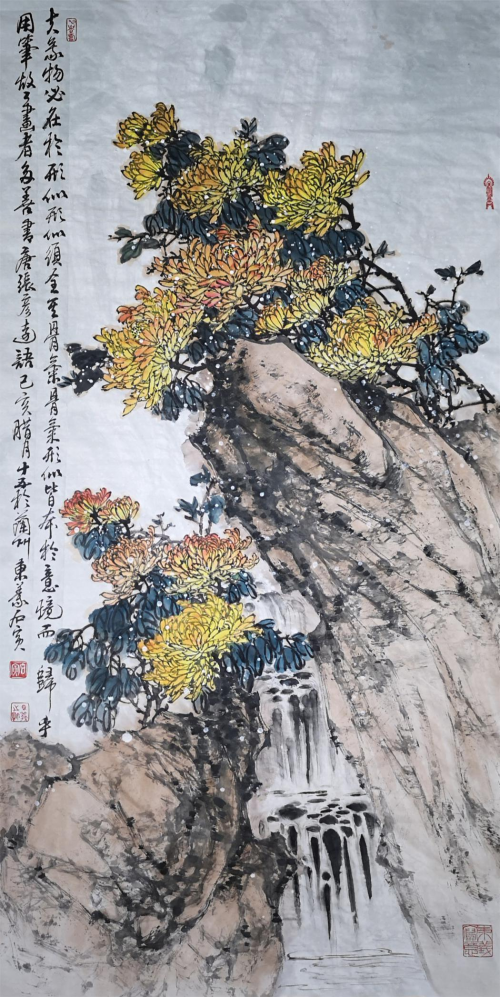 夫象物必在於形似形似須全其骨氣骨氣形似皆本於意境而歸乎
用筆故工畫者多善書唐張彥遠語己亥腊月十五於蘭州東義石